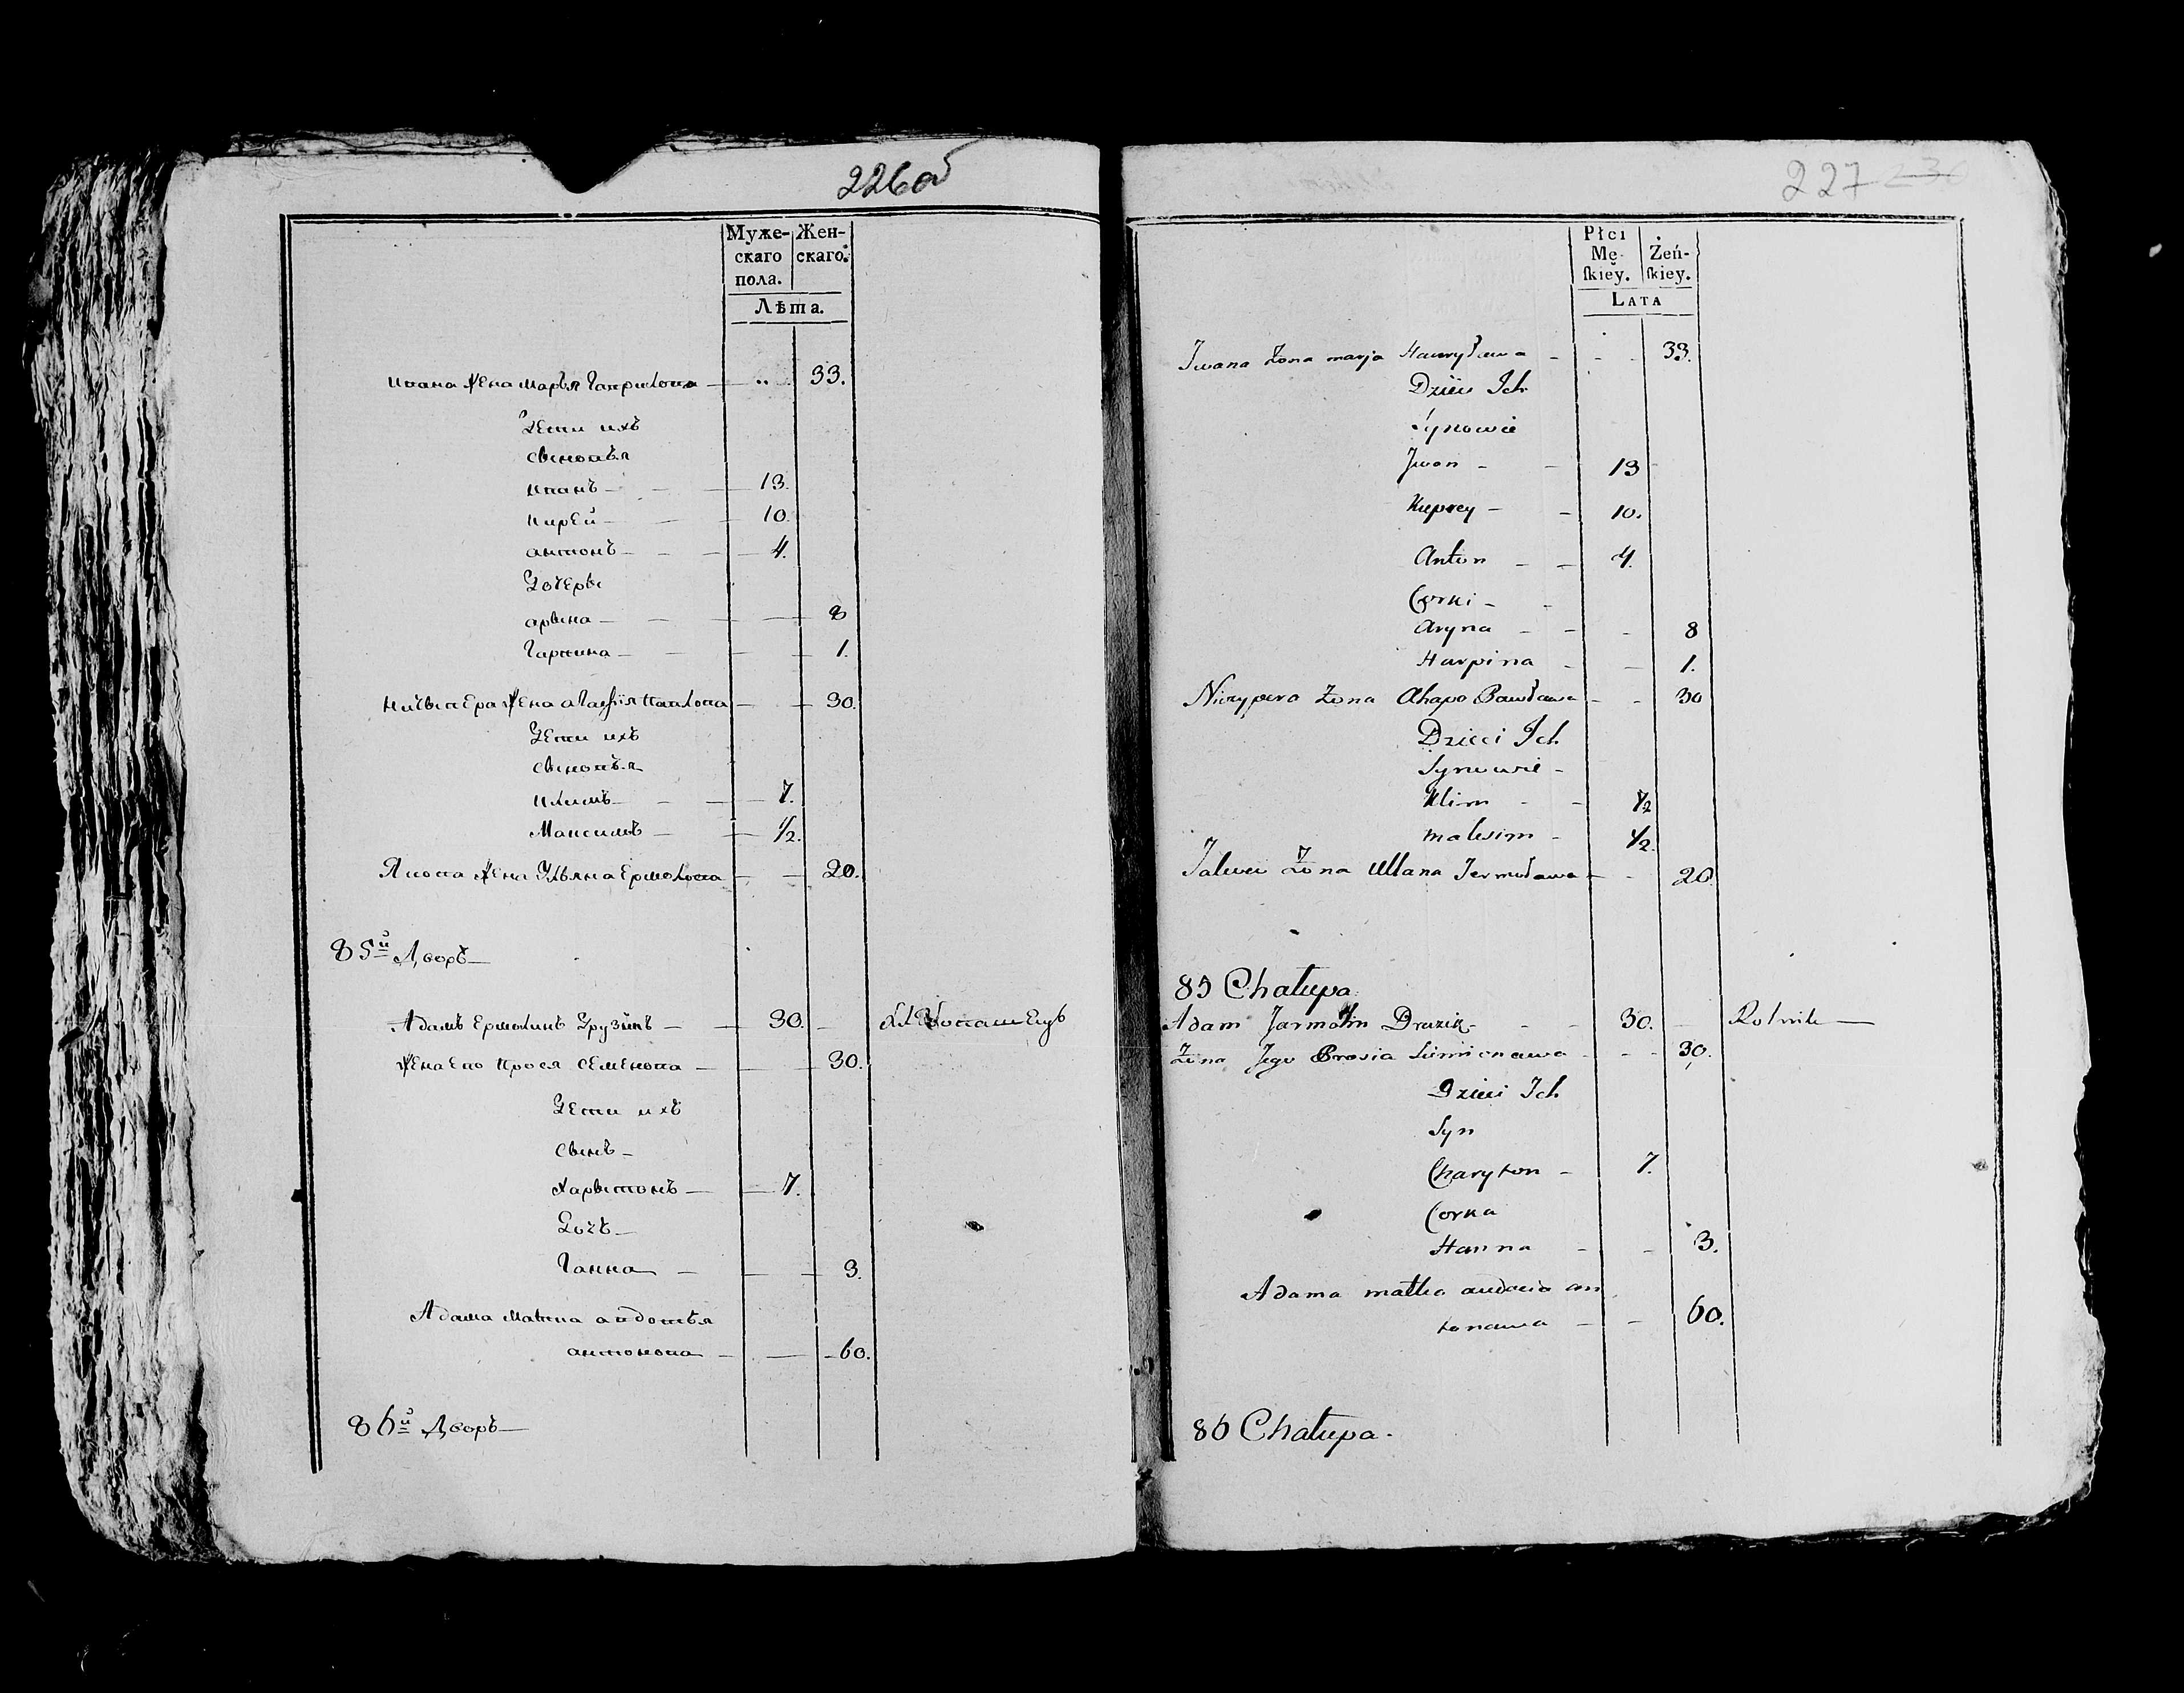 226об
Муже-
скаго
пола.
Жен-
скаго.
Лѣта.
Ивана жена марья Гаврилова — " 33.
Дети ихъ
сыновья
иванъ — — 13.
кирей — — 10.
антонъ — — 4.
Дочеры
арына — — 8
Гарпина — — 1.
Ничыпера жена агафія павлова — 30.
Дети ихъ
сыновья
климъ — — 7.
Максимъ — 1/2.
Якова жена Ульяна Ермолова — 20.
85й Дворъ —
Адамъ Ермолинъ Друзикъ — 30.
жена его прося семенова — 30.
Дети ихъ
сынъ —
харытонъ — 7.
Дочъ —
Ганна — 3.
Адама матка авдотья
антонова — 60.
86й Дворъ —
227 230
Płci
Mę-
ſkiey.
Żeń-
ſkiey.
Lata
Iwana żona marja Hawryławа - - 33.
Dzieci Ich
Synowie
Iwan - - 13
Kuprey - - 10.
Anton - - 4.
Corki -
Aryna - - 8
Harpina - - 1.
Niczypera żona Ahapa Pawława - - 30
Dzieci Ich
Synowie -
Klim - - 1/2
maksim - 1/2.
żona Ullana Jermoława - - 20
85 Chałupa
Adam Jarmolin Druzik - - 30. Rolnik —
żona Jego Prosia Simionawa - - 30.
Dzieci Ich
Syn
Charyton - 7.
Corka
Hanna - - 3.
Adama matka audocia an
tonawa - - 60.
86 Chałupa.